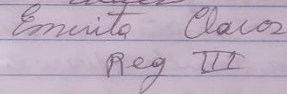 Emerita Claros
Reg III